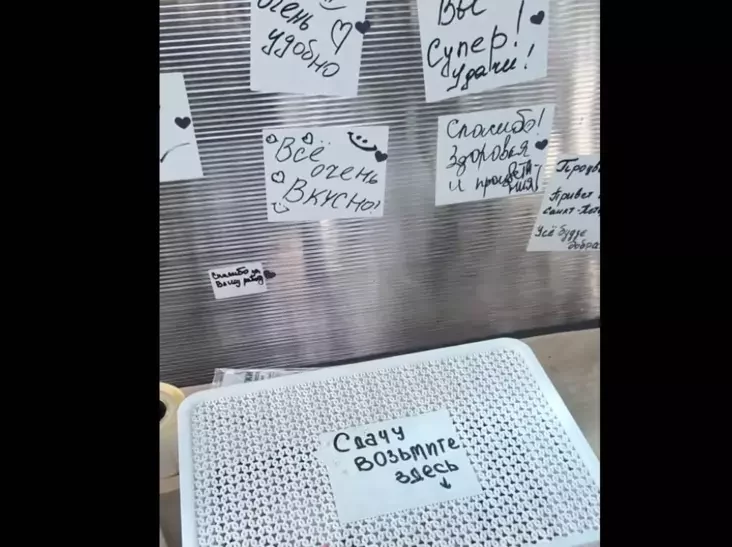 Очень
удобно
Вы
Супер!
Удачи!
Всё
очень
Вкусно!
Спасибо!
Здоровья
и процвета-
ния!
Привет
Санкт-Пет
Всё будзе
добра
Спасибо за
Вашу работу
Сдачу
возьмите
здесь